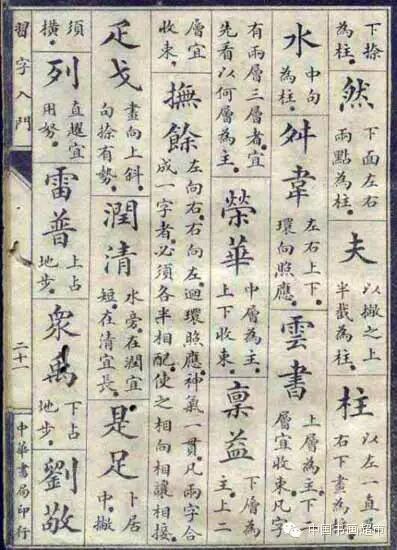 下捺
為柱。
然
下面左右
兩點為柱。
夫
以撇之上
半截為柱。
柱
以左一直
右下畫為
水
中勾
為柱。
舛韋
左右上下。
環向照應。
雲書
上層為主。下
層宜收束。凡字
有兩層三層者。宜
先看以何層為主。
榮華
中層為主。
上下收束。
禀益
下層為
主。上二
層宜
收束。
撫餘
左向右。右向左。迴環照應。神氣一貫。凡兩字合
成一字者。必須各半相配。使之相向相讓相接。
疋戈
畫向上斜。
勾捺有勢。
潤清
水旁。在潤宜
短。在清宜長。
是足
卜居
中。撇
須
橫。
列
直趯宜
用努。
雷普
上占
地步。
衆禹
下占
地步。
劉敬
習字入門
二十一
中華書局印行
中国书画超市